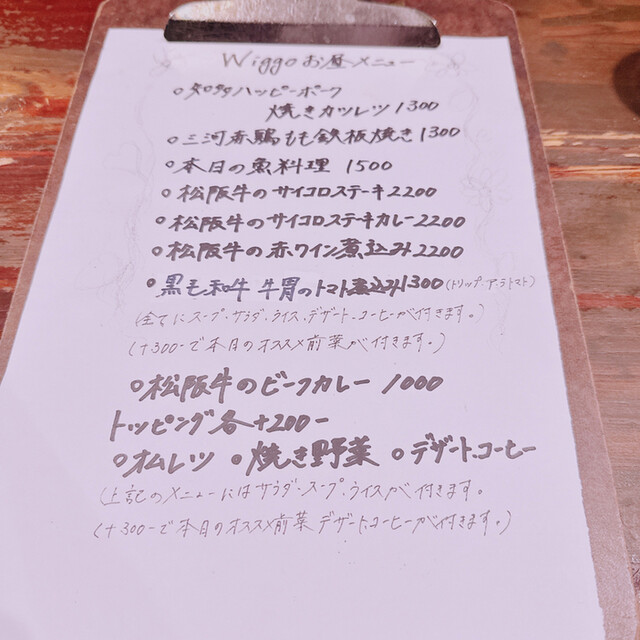 Wiggoお昼メニュー
○知多ハッピーポーク
焼きカツレツ1300
○三河赤鶏もも鉄板焼き1300
○本日の魚料理 1500
○松阪牛のサイコロステーキ2200
○松阪牛のサイコロステーキカレー2200
○松阪牛の赤ワイン煮込み2200
○黒毛和牛 牛胃のトマト煮込み1300(トリップ・ア・ラ・トマト)
(全てにスープ・サラダ・ライス・デザート・コーヒーが付きます。)
(+300-で本日のオススメ前菜が付きます。)
○松阪牛のビーフカレー 1000
トッピング各+200-
○オムレツ ○焼き野菜 ○デザート・コーヒー
(上記のメニューにはサラダ・スープ・ライスが付きます。
(+300-で本日のオススメ前菜 デザート・コーヒーが付きます。)